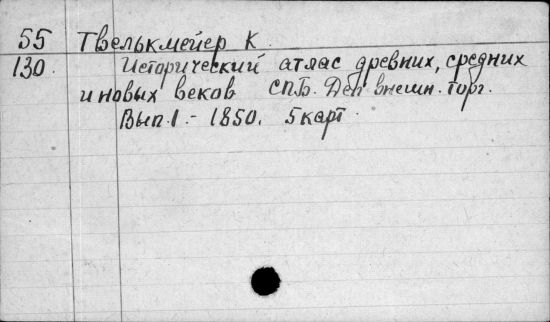 55 Твелькмейер К.
130. Исторический атлас древних, средних
и новых веков СПБ. Деп внешн. торг.
Вып. 1. - 1850. 5 карт.